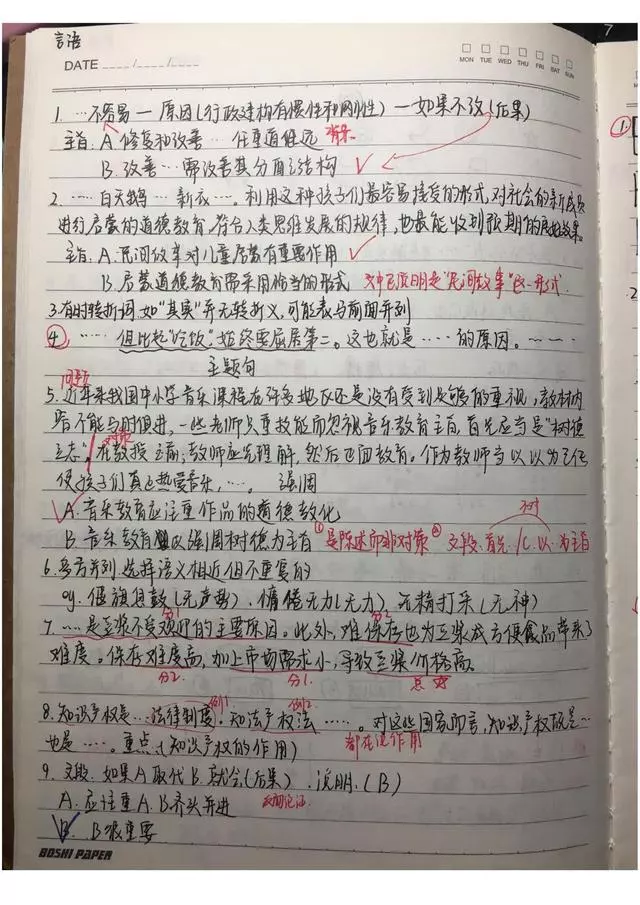 言语
DATE ____/____/____
MON TUE WED THU FRI SAT SUN
1. …不容易 — 原因(行政建构有惯性和刚性) — 如果不改(后果)
主旨: A. 修复和改善… 任重道
B. 改善… 需改善其分配结构
2. …… 白天鹅… 新衣…。利用这种孩子们最容易接受的形式,对社会的新成员
进行启蒙的道德教育,符合人类思维发展的规律,也最能收到预期的效果。
主旨: A. 民间故事对儿童启蒙有重要作用
B. 启蒙道德教育需采用恰当的形式 文中已说明是"民间故事"这一形式
3. 有时转折词,如"其实"并无转折义,可能表与前面并列
④ …… 但比起"吃饭",始终要屈居第二。这也就是……的原因。
主题句
问题
5. 近年来我国中小学音乐课程在许多地区还是没有受到足够的重视,教材内
容不能与时俱进,一些老师只重技能而忽视音乐教育主旨,首先应当是"树德
立志"。在教授之前,教师应先理解,然后
对策
使孩子们真正热爱音乐,…。 强调
A. 音乐教育应注重作品的道德教化
B. 音乐教育应以强调树德为主旨 ①是陈述而非对策 ②文段:首先
树
6. 多者并列,选择语义相近但不重复的
eg. 偃旗息鼓(无声势)、慵倦无力(无力)、无精打采(无神)
7. ……是豆浆不受欢迎的主要原因。此外,难保存也为豆浆成方便食品带来了
分1 分2
难度。保存难度高,加上市场需求小,导致豆浆价格高。
分2. 分1.
8. 知识产权是…法律制度。知识产权法……。对这些国家而言,知识产权既是…
例1 例2
也是……。重点:(知识产权的作用) 都在说作用
9. 文段: 如果A取代B,就会(后果),说明:(B)
A. 应注重A、B齐头并进 反面论证
B. B很重要
BOSHI PAPER